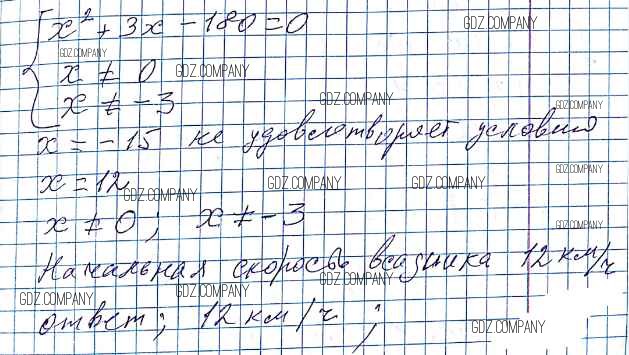 x² + 3x - 180 = 0
GDZ.COMPANY
GDZ.COMPANY
x ≠ 0
GDZ.COMPANY
x ≠ -3
GDZ.COMPANY
GDZ.COMPANY
x = -15 не удовлетворяет условию
GDZ.COMPANY
x = 12
GDZ.COMPANY
GDZ.COMPANY
GDZ.COMPANY
x ≠ 0; x ≠ -3
GDZ.COMPANY
Начальная скорость всадника 12 км/ч
GDZ.COMPANY
GDZ.COMPANY
GDZ.COMPANY
ответ; 12 км/ч;
GDZ.COMPANY